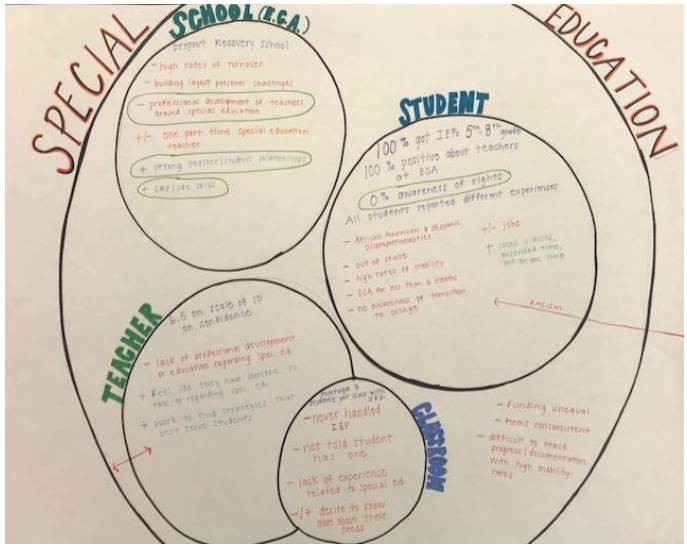 SPECIAL
EDUCATION
SCHOOL (E.G.A.)
Dropout Recovery School
- high rates of turnover
- building layout presents challenges
- professional development of teachers
around special education
+/- one part time special education
teacher
+ strong teacher/student relationships
+ GRP/life skills
STUDENT
100% got IEPs 5th-8th grade
100% positive about teachers
at EGA
0% awareness of rights
All students reported different experiences
- African American & Hispanic
disproportionalities
- out of state
- high rates of mobility
- EGA for less than 6 months
- no awareness of transition
to college
+/- jobs
+ small classes,
extended time,
one on one time
RACISM
TEACHER
6.5 on scale of 10
on confidence
- lack of professional development
or education regarding spec. ed.
+ Feel like they have someone to
talk to regarding spec. ed.
+ work to find strategies that
best serve students
CLASSROOM
Average 3
students per class with
IEP
- never handled
IEP
- not told student
has one
- lack of experience
related to special ed.
-/+ desire to know
more about their
needs
- Funding unequal
- forms nonconsistent
- difficult to track
progress/documentation
with high mobility
rates